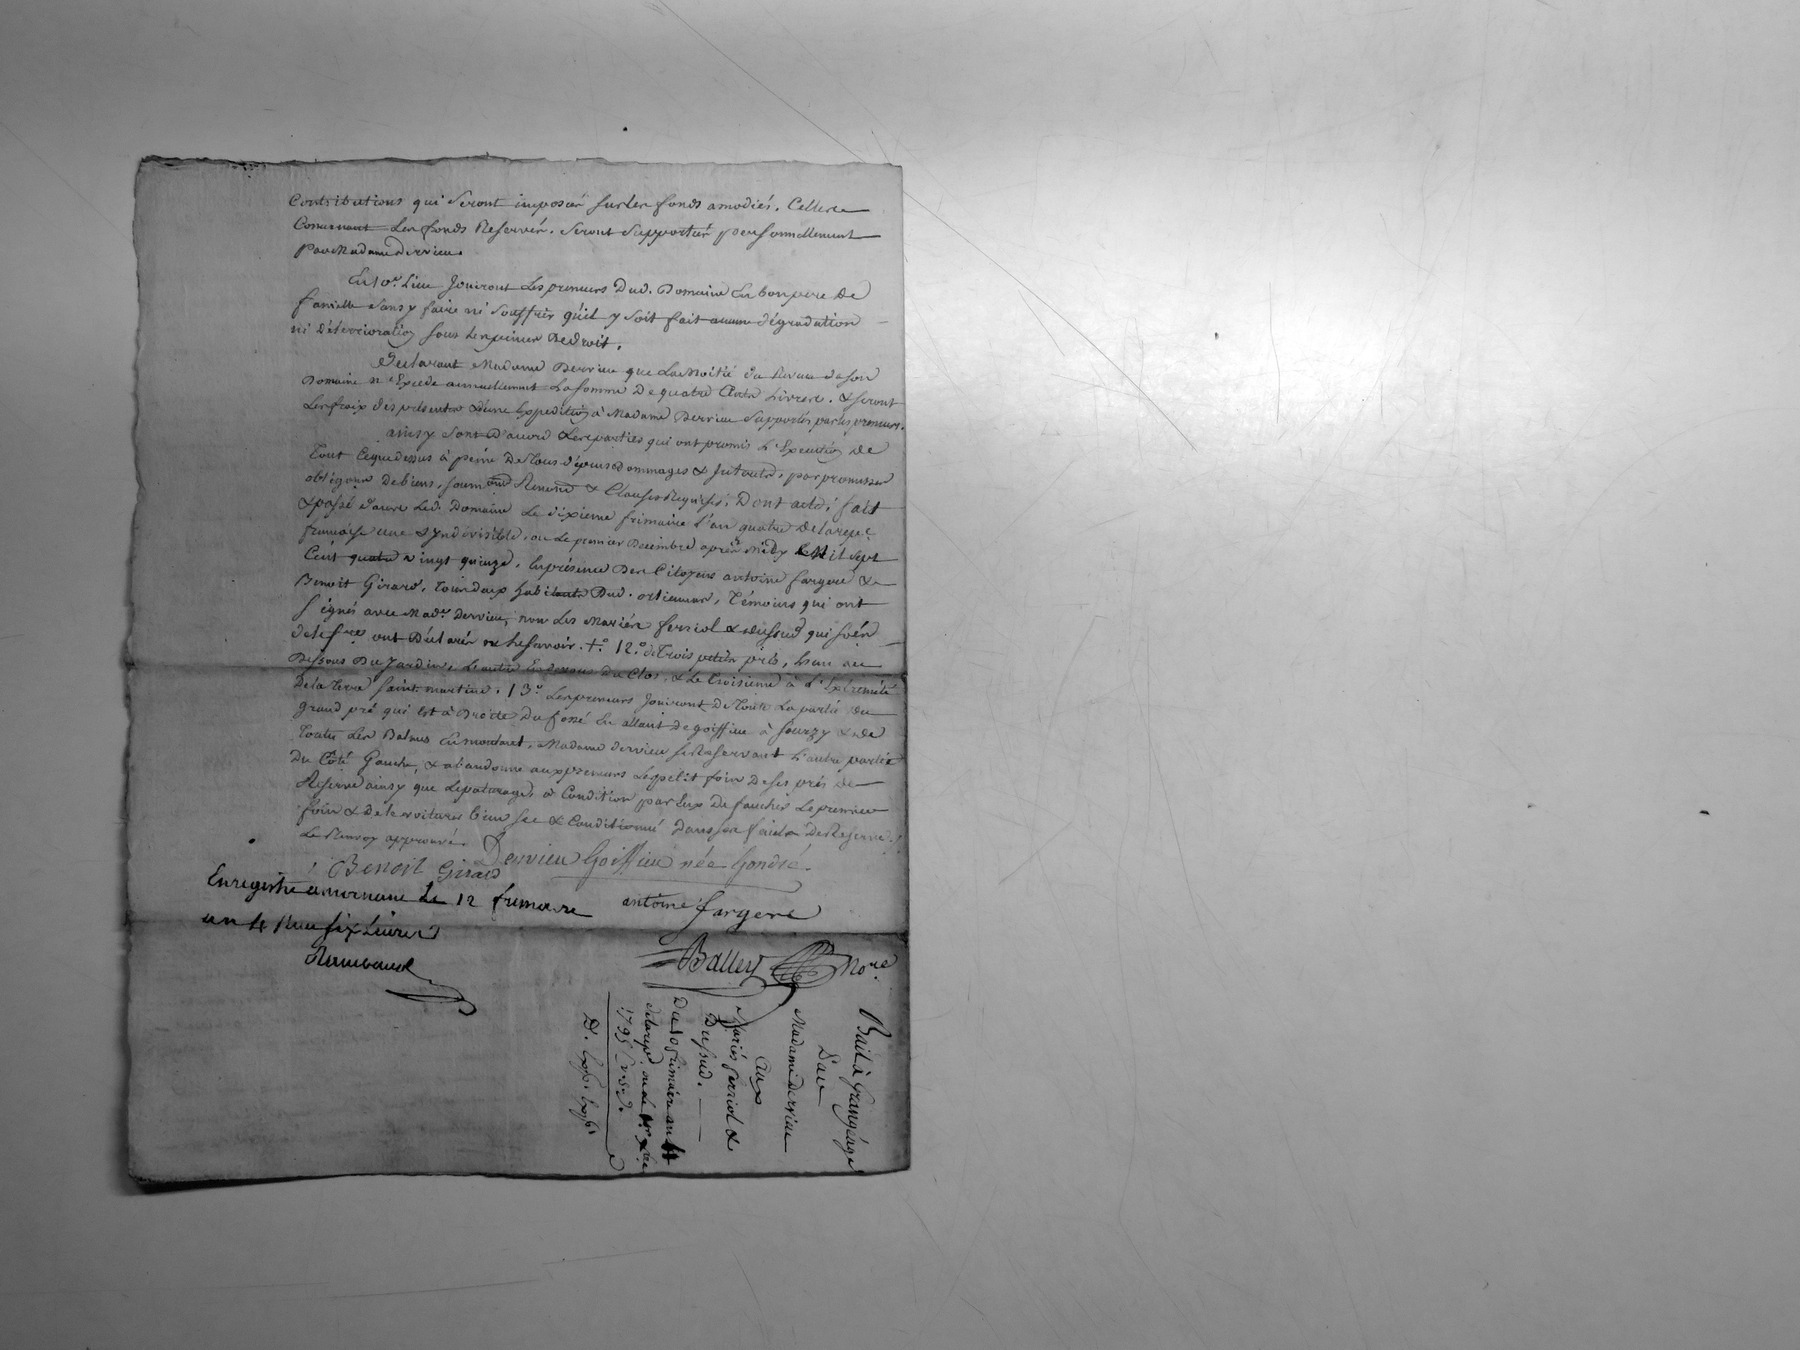 Contributions qui seront imposés sur les fonds amodiés. Celles
Concernant Les fonds Reservés. seront supportés personnellement
par Madame Dervieu.
En 10e. Lieu Jouiront Les preneurs Dud. Domaine En bon pere De
famille sans y faire ni souffrir qu'il y soit fait aucune dégradation
ni Déterrioration sous les peines De droit.
Déclarant Madame Dervieu que La Moitié du Revenu de son
Domaine n'Excede annuellement La somme De quatre Cents Livres. & seront
Les fraix des présentes & d'une Expedition à Madame Dervieu supportés par les preneurs.
ainsy sont D'accord Les parties qui ont promis L'Execution de
Tout Ce que dessus à peine De tous dépens Dommages & Interets, par promesses
obligaon De biens, soumons Renons & Clauses Requises. Dont acte; fait
& passé dans Led. Domaine Le dixieme frimaire l'an quatre De la repe.
francaise une & yndivisible, ou Le premier Decembre après Midy Mil sept
Cent quatre vingt quinze. En présence Des Citoyens antoine fargere &
Benoit Girard, Tous deux habitants Dud. , Témoins qui ont
signés avec Made. Dervieu, non Les Mariés ferriol & Dussud qui
de le fre. ont Déclarés ne le savoir. +. 12.° de Trois près, L'un au
Dessous Du Jardin, Le autre En dessous du Clos, & Le Troisieme à L'Extremité
De la terre saint martin. 13.° Les preneurs Jouiront De Toute La partie du
grand pré qui Est à Droite Du fossé En allant De goiffieu à sourzy & de
Toutes Les Balmes En montant, Madame dervieu se Reservant L'autre partie
Du Côté Gauche, & abandonne aux preneurs Le petit foin De ses près de
Réserve ainsy que Le paturage, à Condition par Eux De faucher Le premier
foin & De le voiturer bien sec & Conditionné Dans sa De Reserve.
Le Renvoy approuvé.
Dervieu Goiffieu née Gondré.
Benoit Girard
Enregistré a mornant Le 12 frimaire
antoine fargere
an 4 Reçu six Livres
Balley Nore.
Bail à Grangéage
Par
Madame dervieu
aux
Mariés ferriol &
Dussud.
Du 10 frimaire an 4
1795 v. s.
D. Exp. Exp.